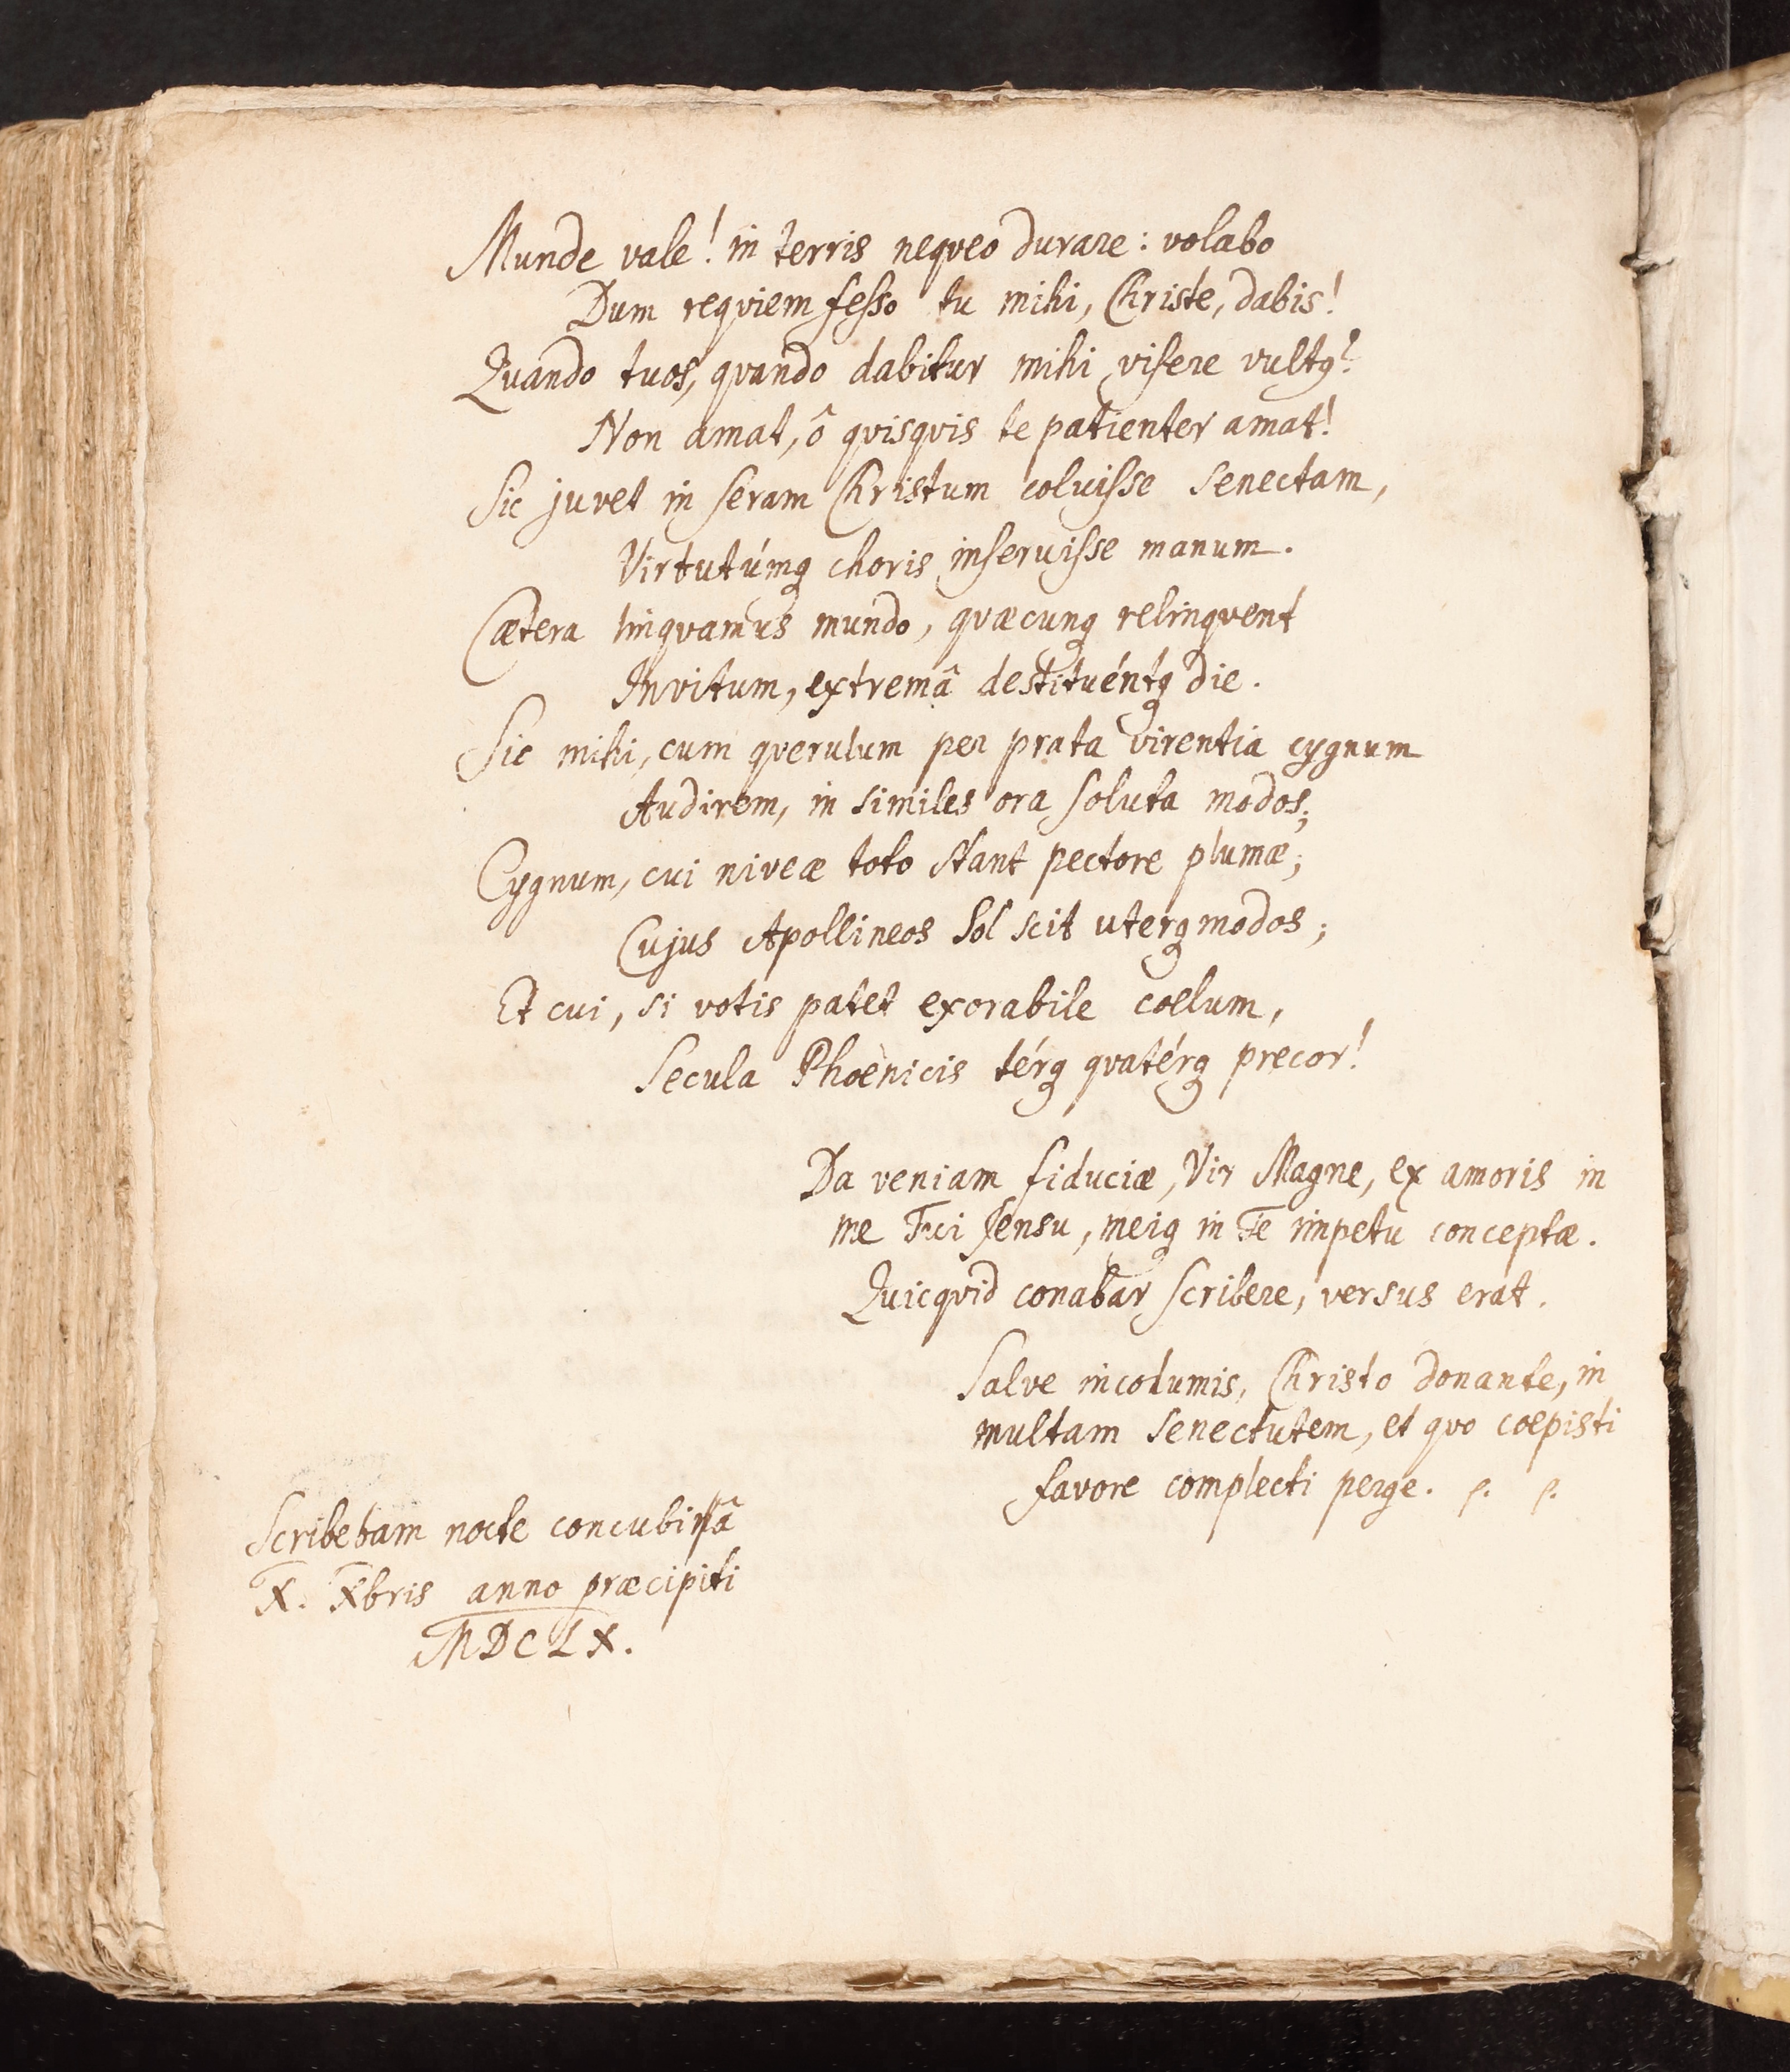 Munde vale! in terris neqveo durare: volabo
Dum reqviem fesso tu mihi, Christe, dabis!
Quando tuos, qvando dabitur mihi visere vultꝰ?
Non amat, ô qvisqvis te patienter amat!
Sic juvet in seram Christum coluisse senectam,
Virtutúmqꝫ choris inseruisse manum.
Cætera linqvamus mundo, qvæcunqꝫ relinqvent
Invitum, extremâ destituéntqꝫ die.
Sic mihi, cum qverulum per prata virentia cygnum
Audirem, in similes ora soluta modos;
Cygnum, cui niveæ toto stant pectore plumæ;
Cujus Apollineos Sol scit uterqꝫ modos;
Et cui, si votis patet exorabile coelum,
Secula Phoenicis térqꝫ qvatérqꝫ precor!
Da veniam fiduciæ, Vir Magne, ex amoris in
me Tui sensu, meiqꝫ in Te impetu conceptæ.
Quicqvid conabar scribere, versus erat.
Salve incolumis, Christo donante, in
multam senectutem, et qvo coepisti
favore complecti perge.
Scribebam nocte concubiâ
X. Xbris anno præcipiti
MDCLX.